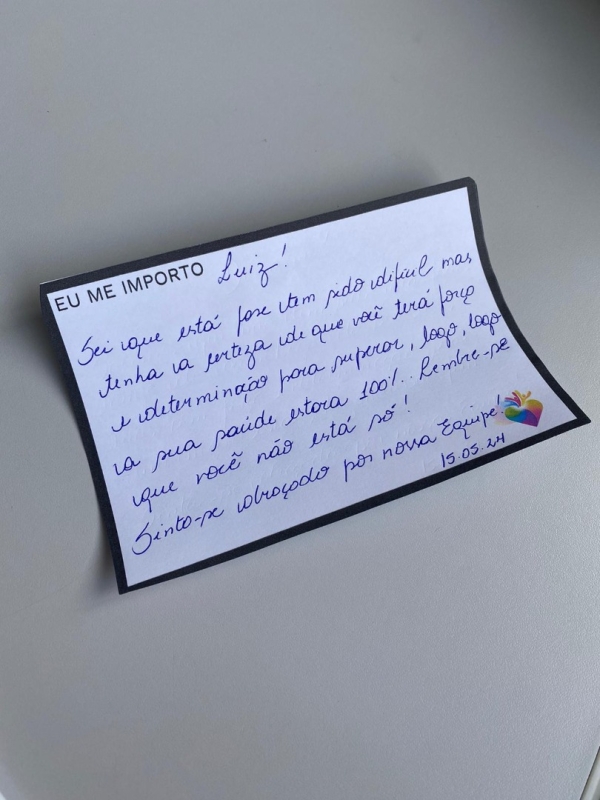 EU ME IMPORTO Luiz!
Sei que está fase tem sido difícil mas
tenha a certeza de que você terá força
e determinação para superar, logo, logo
a sua saúde estara 100%.. Lembre-se
que você não está só!
Sinta-se abraçado por nossa Equipe!
15.05.24